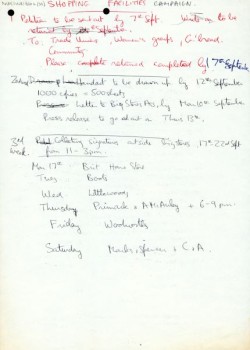 SHOPPING FACILITIES CAMPAIGN.
Petition to be sent out by 7th Sept. to be
returned by September.
To: Trade Unions, Women's groups, G. brand
Community
Please complete returned completed by 7th Septe
Handout to be drawn up by 12th September
1000 copies = 500 sheets
Letter to Big Stores, etc, by Mon 10th September
Press release to go out on Thurs 13th.
3rd week. Collecting signatures outside big stores, 17th-22nd Sept
from 11 - 3pm.
Mon 17th Brit Home Store
Tues Boots
Wed Littlewoods
Thursday Primark + A McAuley + 6-9 pm
Friday Woolworths
Saturday Marks, Spencer + C&A.